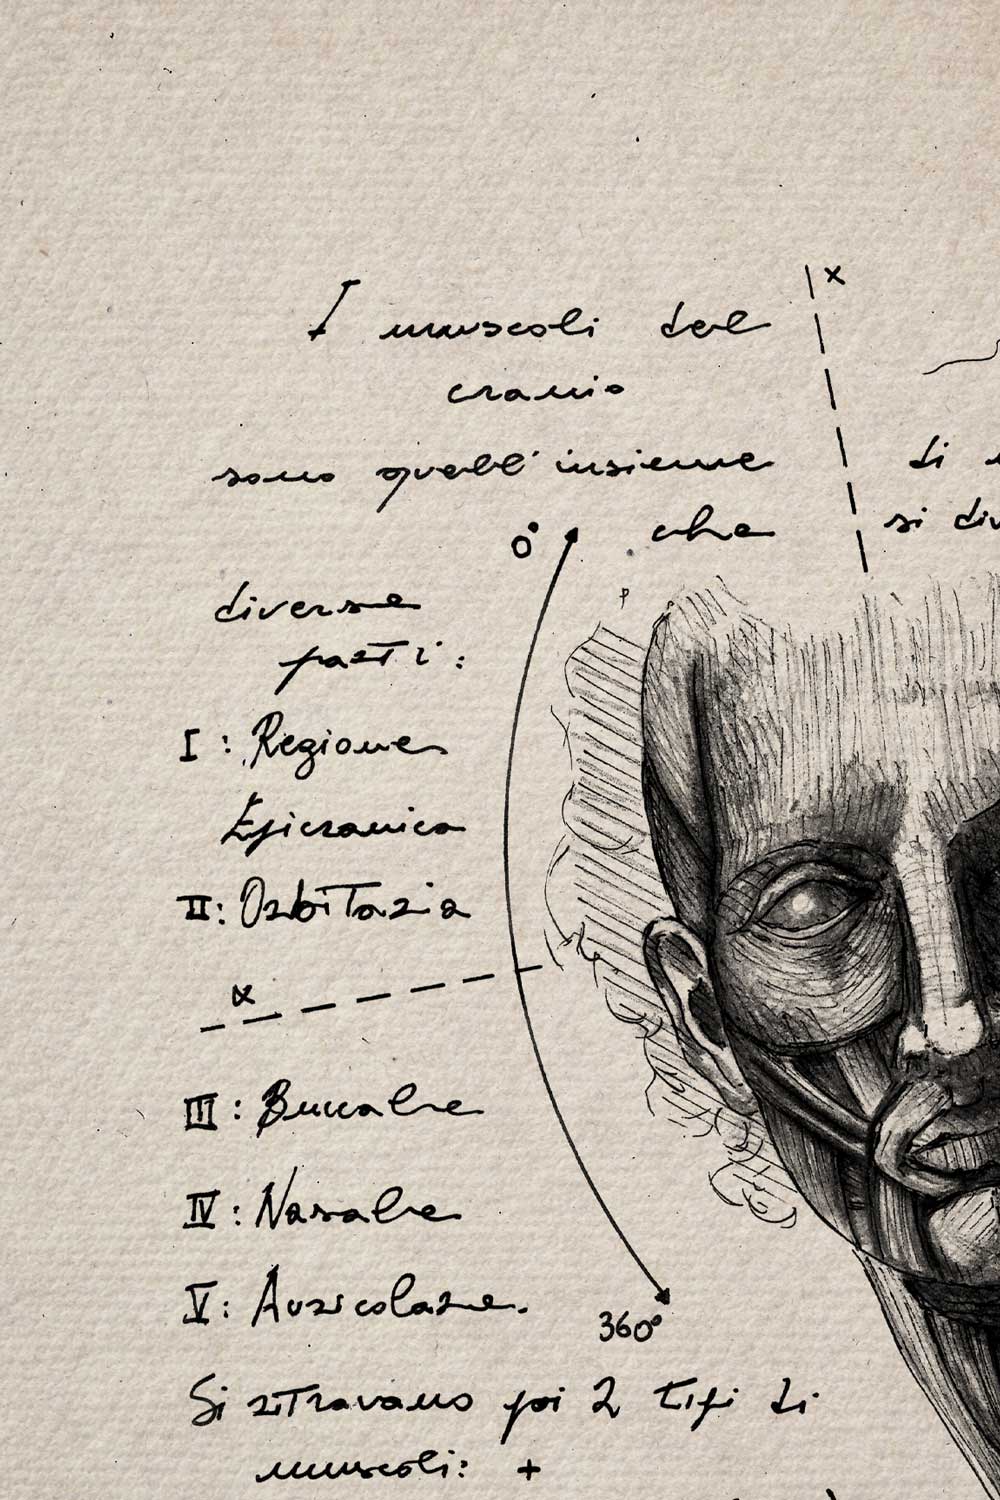 x
I muscoli del
cranio
sono quell' insieme
di
che
si div
0°
diverse
parti:
I: Regione
Epicranica
II: Orbitaria
α
III: Buccale
IV: Nasale
V: Auricolare.
360°
Si ritravano poi 2 tipi di
muscoli: +